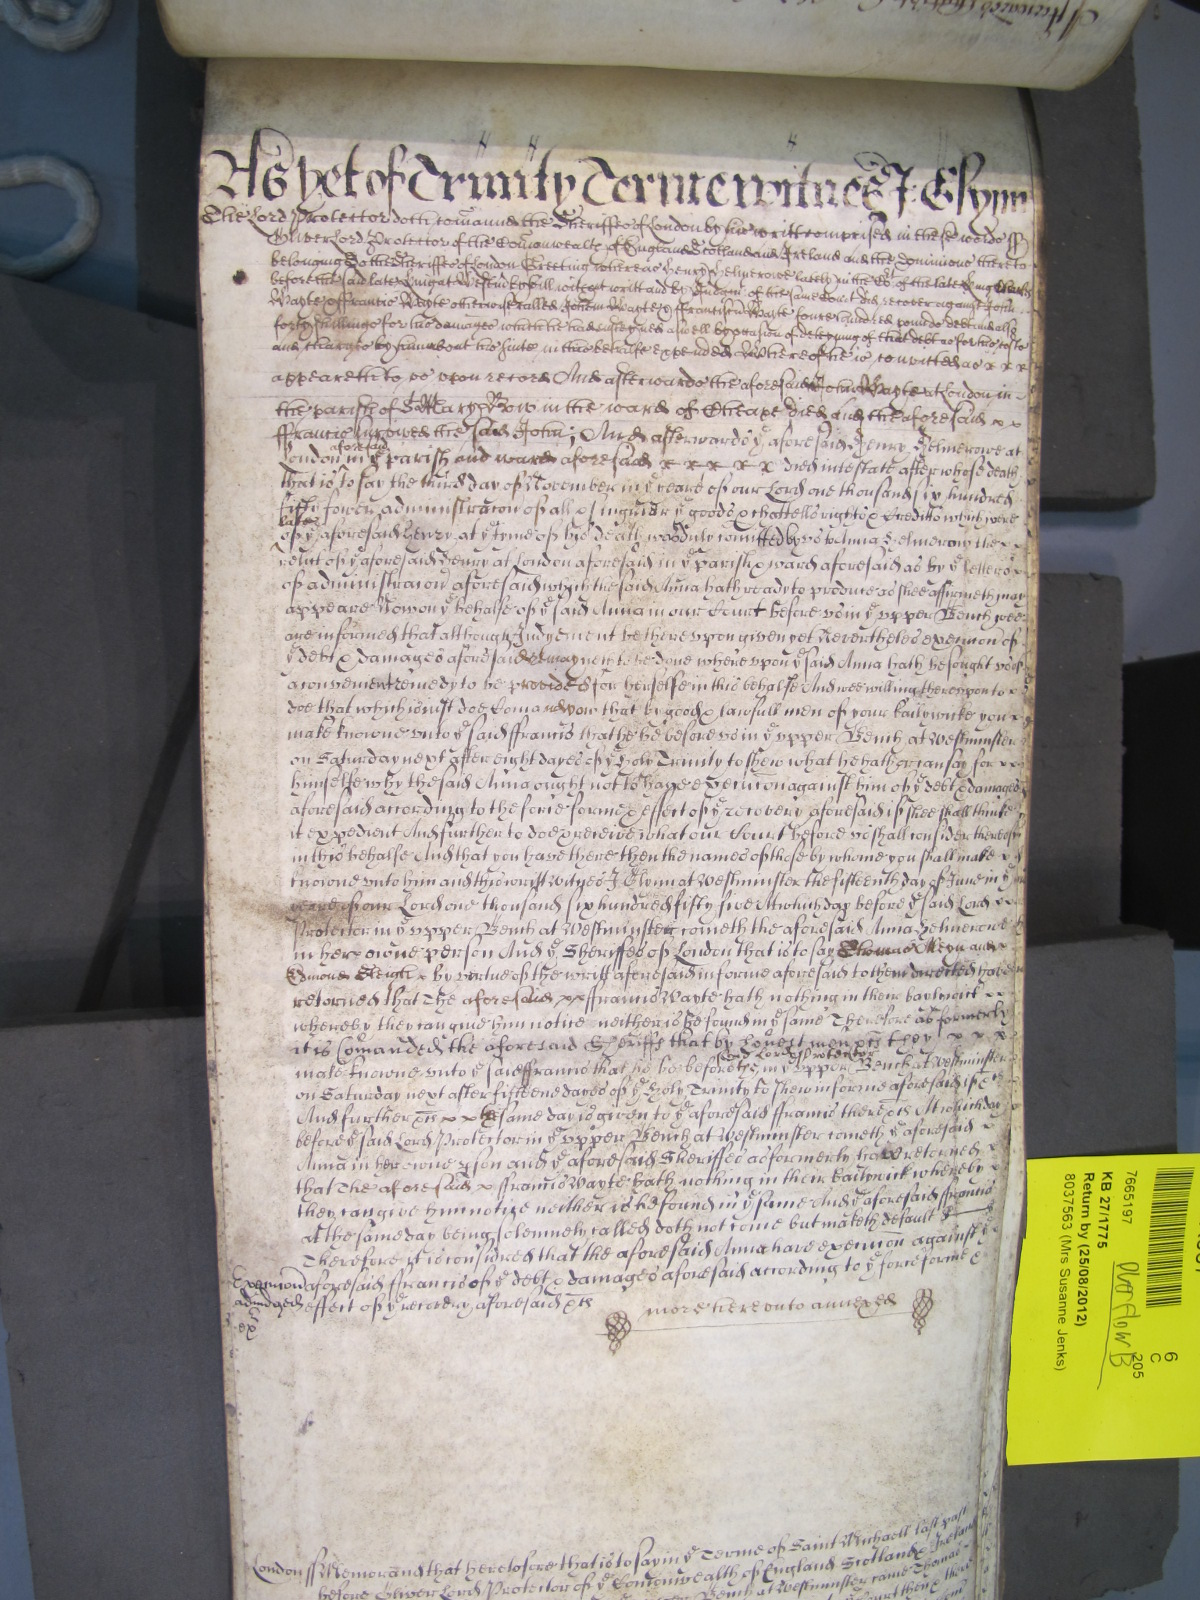 As yet of Trinity Terme witnes J: Glynn
The Lord Protector doth comaund the Sheriffes of London by his writt comprised in these words ss
Oliver Lord Protector of the Comonwealth of England Scotland and Ireland and the dominions thereto
belonging To the Sheriffes of London Greeting whereas Henry Helmerowe lately in the Cot of the late King Charles
before the said late King at Westmr by bill without writt and by Judgmt of the same Court did recover against John
Wayte & Francis Wayte otherwise called John Wayte & ffrancis Wayte foure hundred pounds debt and alsoe
forty shillings for his damages which he had susteyned aswell by occasion of deteyning of that debt as for his costs
and charges by him about his suite in this behalfe expended Whereof he is convicted as x x x
appeareth to us upon record And afterwards the aforesaid John Wayte at London in
the parish of St Mary Bow in the ward of Cheape died and the aforesaid x x
ffrancis survived the said John; And afterwards ye aforesaid Henry Helmerowe at
London aforesaid in ye parish and ward aforesaid x x x x x died intestate after whose death
that is to say the third day of November in ye yeare of our Lord one thousand six hundred
fifty fower administracon of all & singuler ye goods & chattells rights & Creditts which were
late of ye aforesaid Henry at ye tyme of his death was duly comitted by us to Anna Helmerow the x
relict of ye aforesaid Henry at London aforesaid in ye parish & ward aforesaid as by ye letters x
of administracon aforesaid which the said Anna hath ready to produce as shee affirmeth may
appeare Now on ye behalfe of ye said Anna in our Court before us in ye upper Bench wee
are informed that although Judgement be thereupon given yet Nevertheles execucon of
ye debt & damages aforesaid remayneth to be done whereupon ye said Anna hath besought us of
a convenient remedy to be provided for herselfe in this behalfe And wee willing thereupon to x
doe that which is just doe Comand you that by good & lawfull men of your bailywicke you x
make knowne unto ye said ffrancis that he be before us in ye upper Bench at Westminster
on Saturday next after eight dayes of ye holy Trinity to shew what he hath or can say for x x
himselfe why the said Anna ought not to have execucon against him of ye debt & damages
aforesaid according to the force forme & effect of ye recovery aforesaid if shee shall thinke
it expedient And further to doe & receive what our Court before us shall consider thereof
in this behalfe And that you have there then the names of those by whome you shall make x
knowne unto him and this writt Witnes J. Glynn at Westminster the fifteenth day of June in ye
yeare of our Lord one thousand six hundred fifty five At which day before ye said Lord x
Protector in ye upper Bench at Westminster cometh the aforesaid Anna Helmerowe
in her owne person And ye Sheriffes of London that is to say
Edmond Sleigh x by vertue of the writt aforesaid in forme aforesaid to them directed have
retorned that The aforesaid xx ffrancis Wayte hath nothing in their baylywick x x
whereby they can give him notice neither is he found in ye same Therefore as formerly
it is Comanded the aforesaid Sheriffs that by honest men &c they x x x
make knowne unto ye said ffrancis that he be before the said Lord Protector in ye upper Bench at Westminster
on Saturday next after fifteene dayes of ye holy Trinity to shew in forme aforesaid if &c
And further &c x x the same day is given to ye aforesaid ffrancis there &c At which day
before ye said Lord Protector in ye upper Bench at Westminster cometh ye aforesaid x
Anna in her owne pson and ye aforesaid Sheriffes as formerly have retorned x
that The aforesaid x ffrancis Wayte hath nothing in their bailywick whereby x
they can give him notice neither is he found in ye same And ye aforesaid ffrancis
at the same day being solemnely called doth not come but maketh default
Therefore it is considred that the aforesaid Anna have execucon against ye
Execucion
adiudged
aforesaid ffrancis of ye debt & damages aforesaid according to ye force forme &
effect of ye recovery aforesaid &c
more hereonto annexed
London ss Memorand that heretofore that is to say in ye Terme of Saint Michaell last past
before Oliver Lord Protector of ye Comonwealth of England Scotland & Ireland
Bench at Westminster came Thomas
7665197
KB 27/1775
Return by (25/08/2012)
8037563 (Mrs Susanne Jenks)
6
C
205